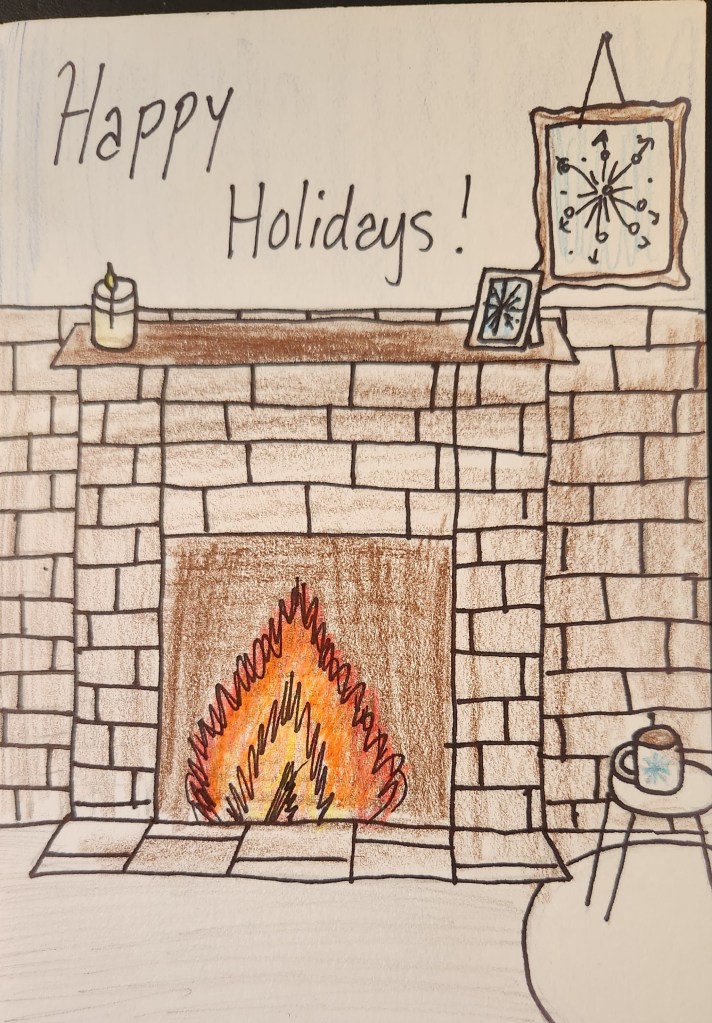 Happy
Holidays!